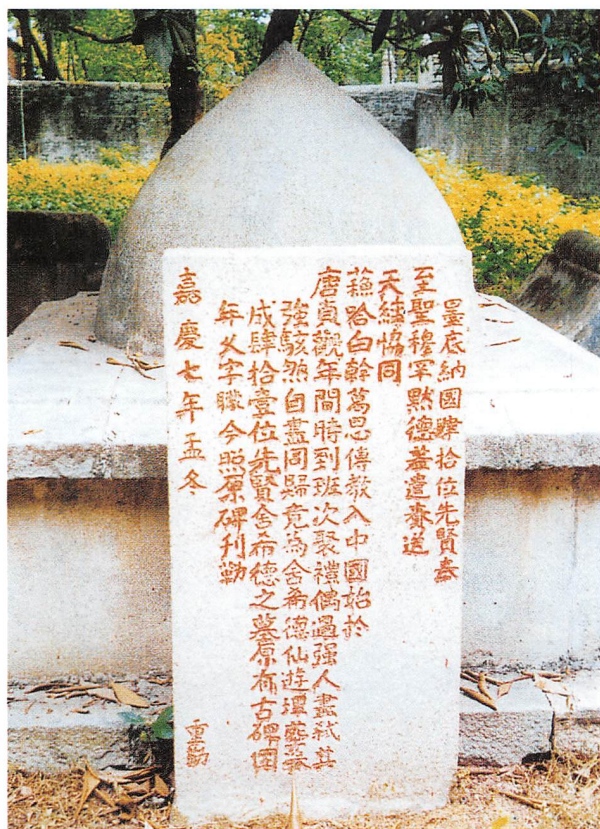 墨底納國肆拾位先賢奉
至聖穆罕默德蓋遣賚送
天經協同
蘓哈白幹葛思傳教入中國始於
唐貞觀年間時到班次聚禮偶遇强人盡弒其
強駭然自盡同歸竟為舍希德仙遊
成肆拾壹位先賢舍希德之墓原有古碑因
年久字朦今照原碑刊勒
嘉慶七年孟冬 重勒